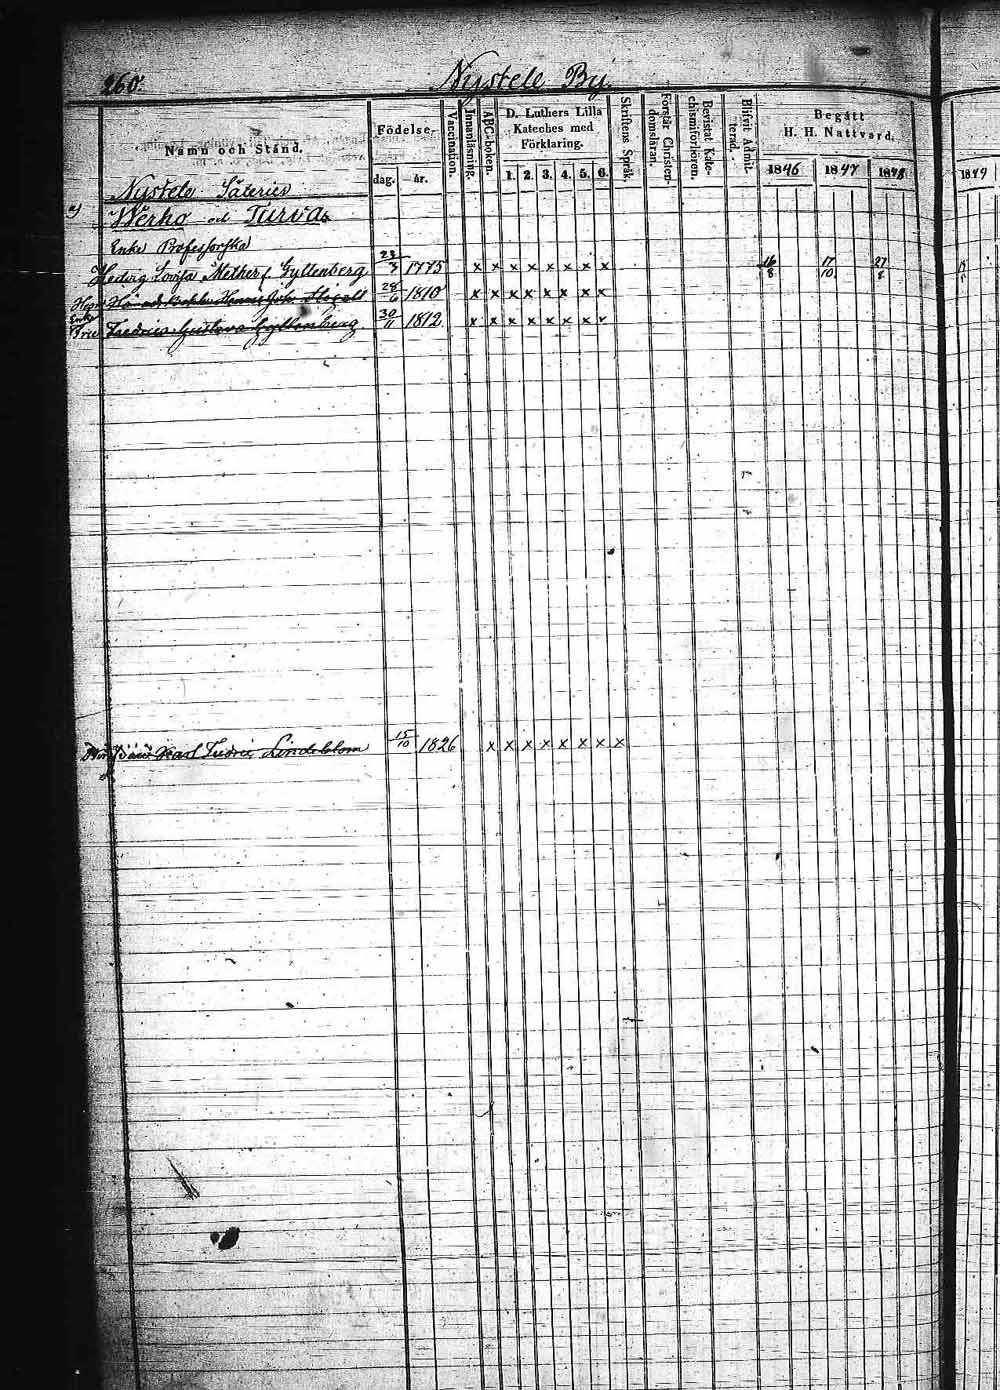 260.
Nystele By.
Namn och Stånd.
Födelse-
dag. år.
Vaccination.
Innanläsning.
ABC-boken.
D. Luthers Lilla
Kateches med
Förklaring.
1. 2. 3. 4. 5. 6.
Skriftens Språk.
Förstår Christen-
domsläran.
Bevistat Kate-
chismiförhören.
Blifvit Admit-
terad.
Begått
H. H. Nattvard.
1846 1847 1848
1849
Nystele Säterie
Werho och Turva
Enke Professorska
Hedwig Lovisa Mether f. Gyllenberg 28/3 1775 x x x x x x x x 16/8 17/10 27/8
28/6 1810 x x x x x x x x
Enke
Fredrica Gustava Gyllenberg 30/11 1812 x x x x x x x x
Karl Lindeblom 15/10 1826 x x x x x x x x